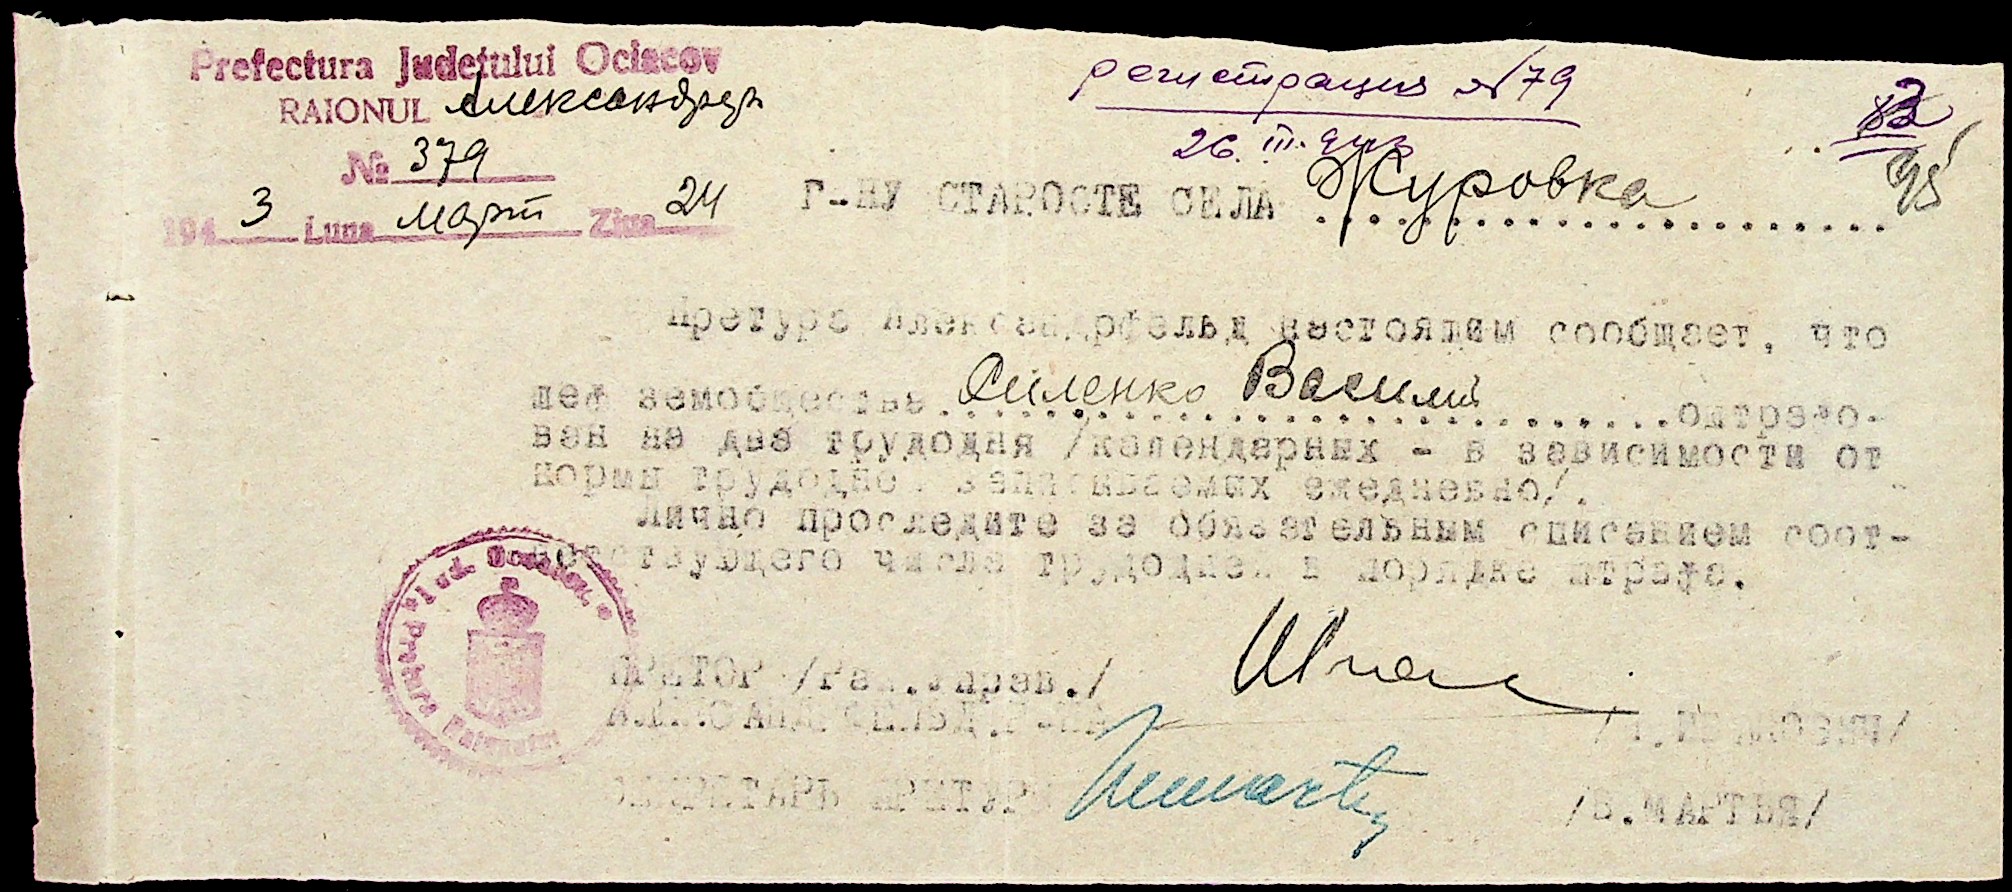 Prefectura Județului Ociacov
RAIONUL Александфер
№ 379
1943 Luna март Ziua 24
регистрация №79
26. III. 943
Г-НУ СТАРОСТЕ СЕЛА Журовка
Претура Александрфельд настоящим сообщает, что
шеф земобщества Силенко Василий оштрафо-
ван на два трудодня /календарных - в зависимости от
нормы трудодней записываемых ежедневно/.
Лично проследите за обязательным списанием соот-
ветствующего числа трудодней в порядке штрафа.
Jud. Oceacov
Pretura Raionului
ПРЕТОР /Рай.управ./
АЛЕКСАНДРФЕЛЬД.Р-НА
СЕКРЕТАРЬ ПРЕТУРЫ
/В.МАРТЬЯ/